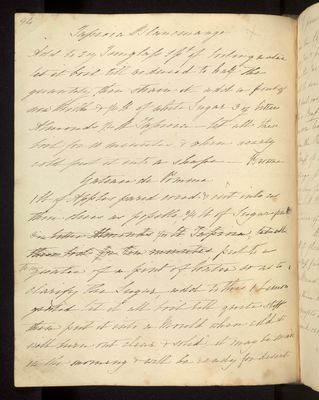 94
Tapioca Blancmange
Add to 2 oz Isinglass 1 pt of boiling water
let it boil till reduced to half the
quantity, then strain it add a pint of
new Milk & ¼ lb of white Sugar 3 oz bitter
Almonds ¼ lb Tapioca — let all these
boil for 10 minutes & when nearly
cold put it into a shape —
Gateau de Pomme
1 lb of Apples pared cored & cut into as
thin slices as possible ¾ lb of Sugar put
bitter Almonds ¼ lb Tapioca, let all
these boil for ten minutes put to a
quarter of a pint of Water so as to
clarify the Sugar, add to this 1 Lemon
grated let it all boil till quite stiff
then put it into a Mould when cold it
will turn out clear & solid it may be made
in the morning & will be ready for desert